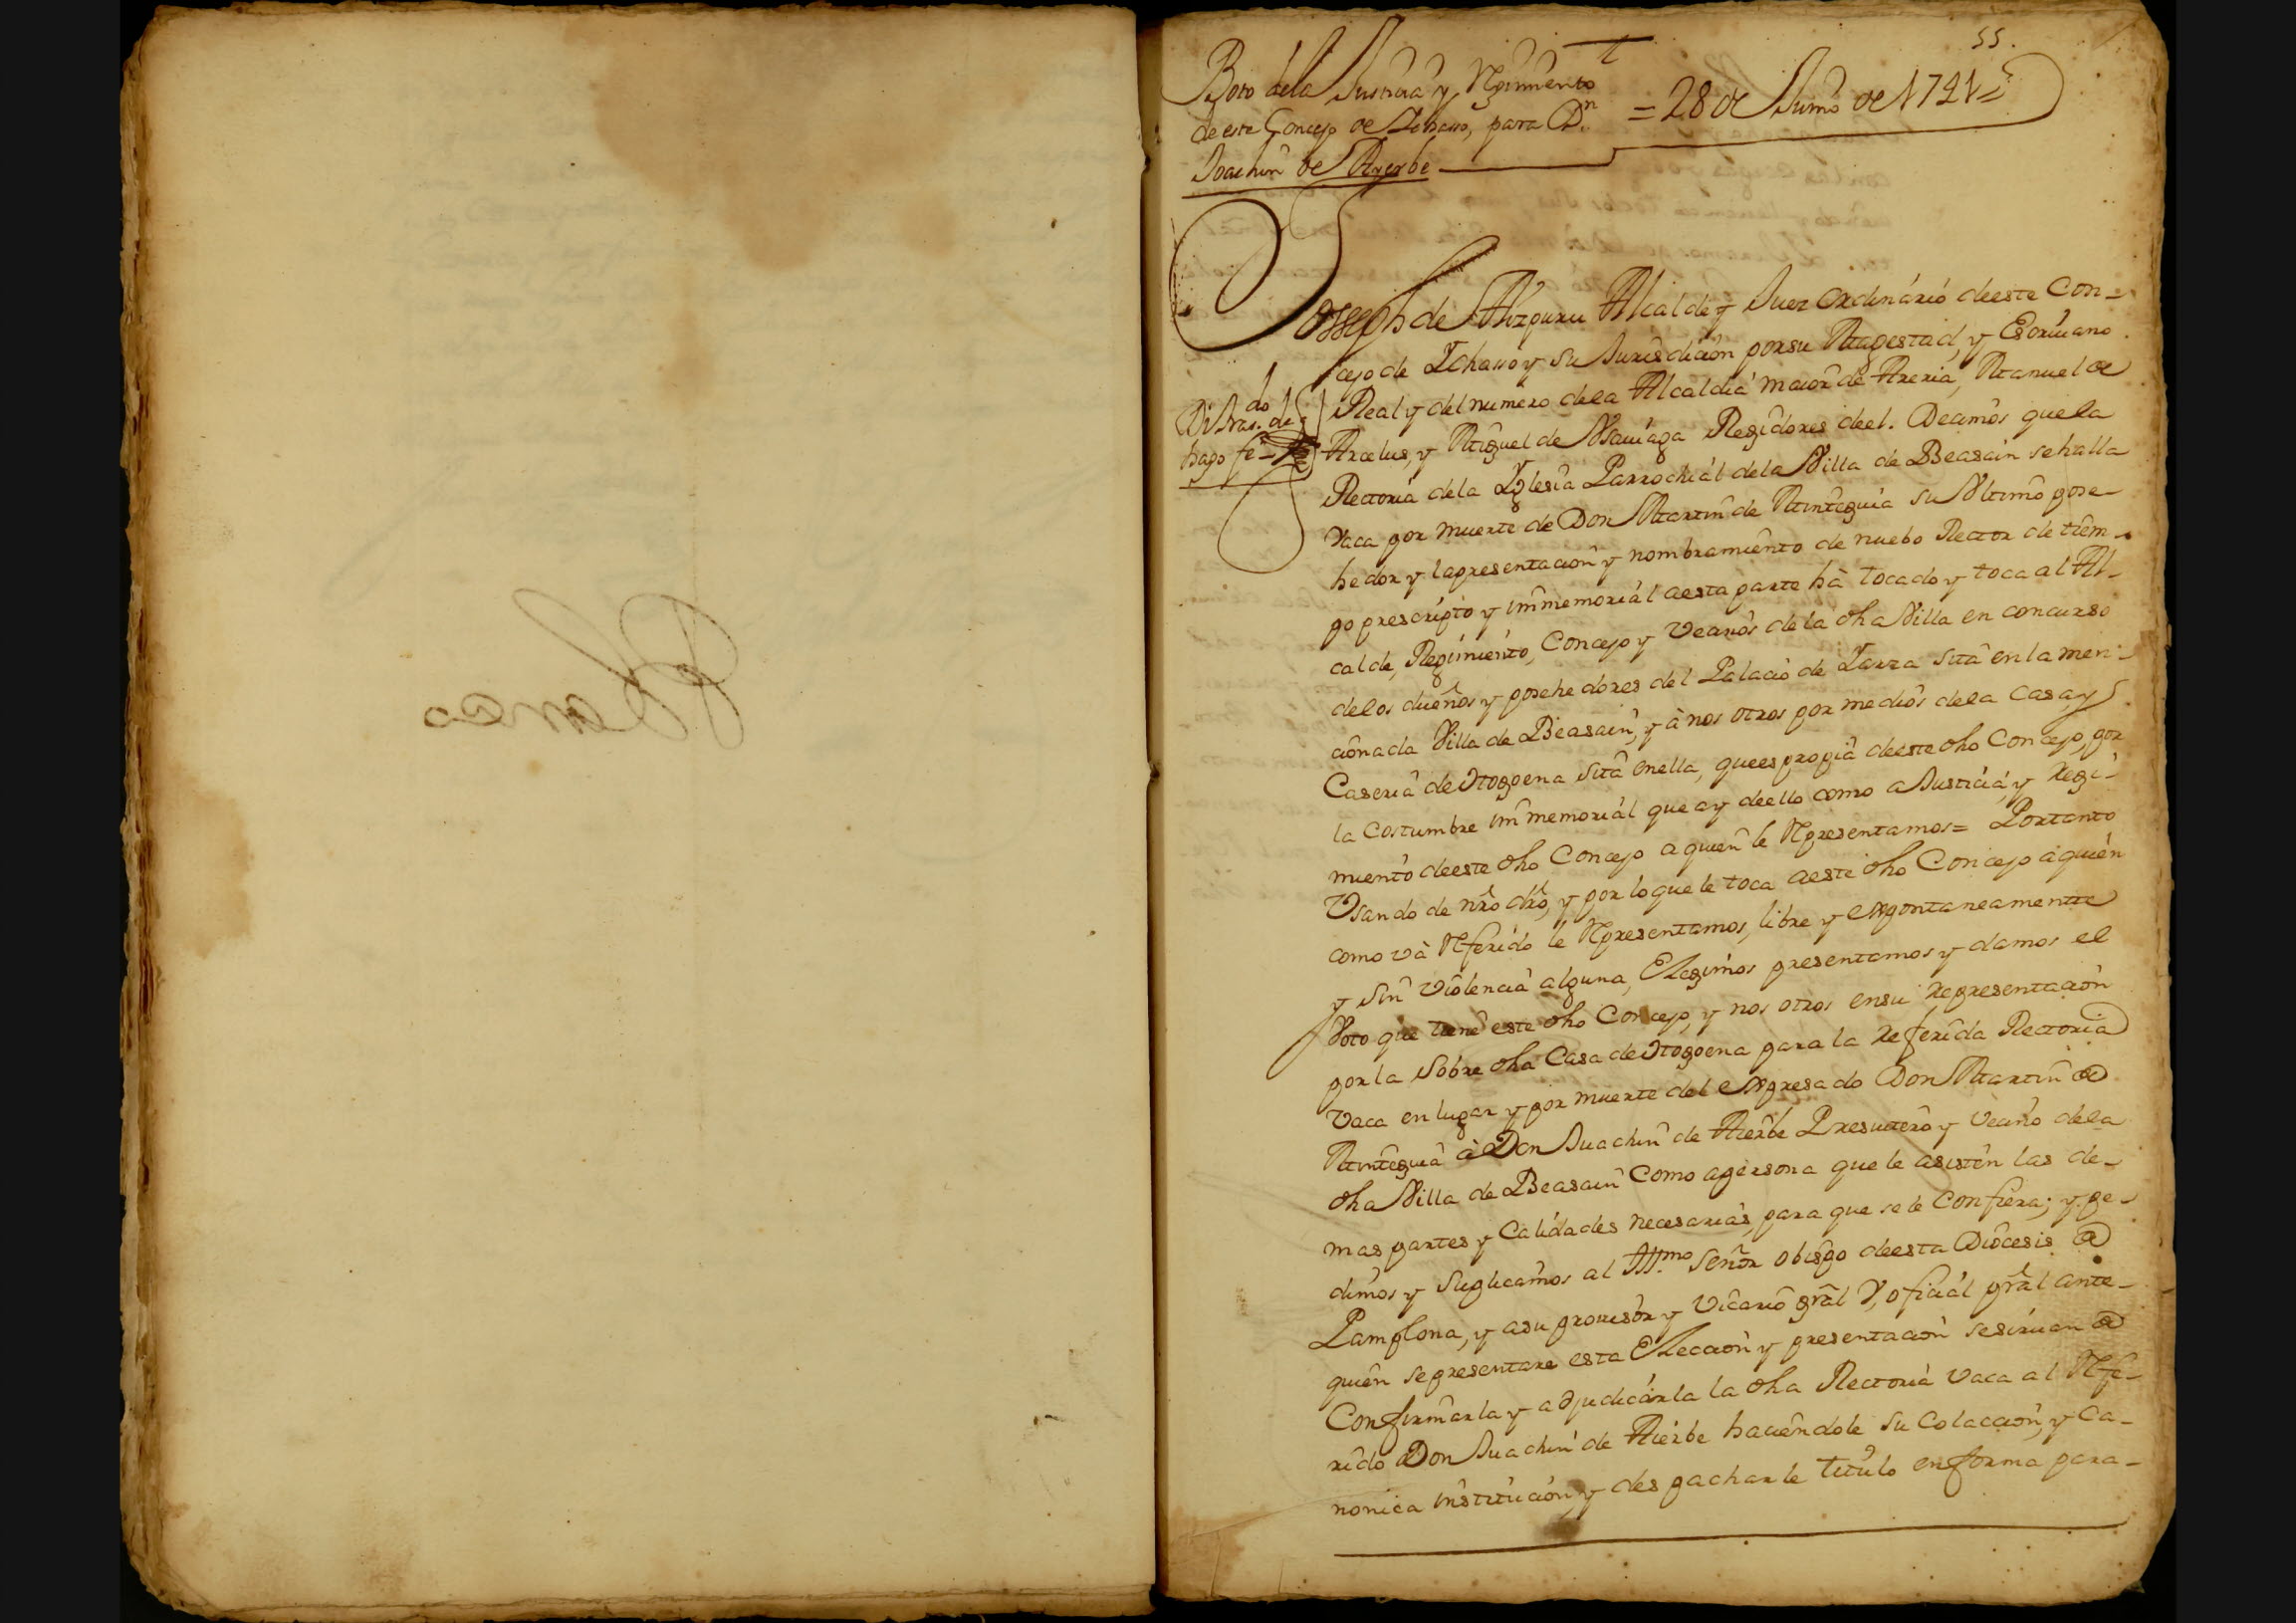 55.
Boto dela Justicia y Regimiento
de este Concejo de Ichasso, para Dn.
Joachin de Ayerbe
= 28 de Junio de 1721 =
Joseph de Aizpuru Alcalde y Juez Ordinario deeste Con-
cejo de Ychasso y su Jurisdicion por su Magestad, y Escriuano
Real y del numero dela Alcaldia maior de Areria, Manuel de
Arcelus, y Miguel de Vsauiaga Regidores deel. Decimos que la
Rectoria dela Yglesia Parrochial dela Villa de Beasain se halla
Vaca por muerte de Don Martin de Minteguia su Vltimo pose-
hedor y la presentacion y nombramiento de nuebo Rector de tiem-
po prescripto y immemorial aesta parte hà tocado y toca al Al-
calde, Regimiento, Concejo y Vecinos de la dha Villa en concurso
delos dueños y posehedores del Palacio de Yarza sita en la men-
cionada Villa de Beasain, y à nos otros por medios dela Casa, y
Caseria de Otogoena sita enella, que es propia deeste dho Concejo, por
la Costumbre immemorial que ay deello como a Justicia, y Regi-
miento deeste dho Concejo a quien le Representamos = Portanto
Vsando de nro dro, y por lo que le toca aeste dho Concejo aquien
como và Referido le Representamos, libre y expontaneamente
y sin violencia alguna, Elegimos presentamos y damos el
Voto que tiene este dho Concejo, y nos otros ensu representacion
por la sobre dha Casa de Otogoena para la referida Rectoria
Vaca en lugar y por muerte del expresado Don Martin de
Minteguia à Don Juachin de Aierbe Presuitero y Vecino dela
dha Villa de Beasain Como apersona que le asisten las de-
mas partes y Calidades necesarias, para que se le Confiera; y pe-
dimos y suplicamos al Illmo. señor obispo deesta Diocesis de
Pamplona, y asu prouisor y Vicario gral Y, oficial pral ante-
quien se presentare esta Eleccion y presentacion se siruan de
Confirmarla y adjudicarla la dha Rectoria Vaca al Refe-
rido Don Juachin de Aierbe haciendole su Colaccion, y Ca-
nonica institucion, y despacharle titulo enforma para-
do de
hago fe